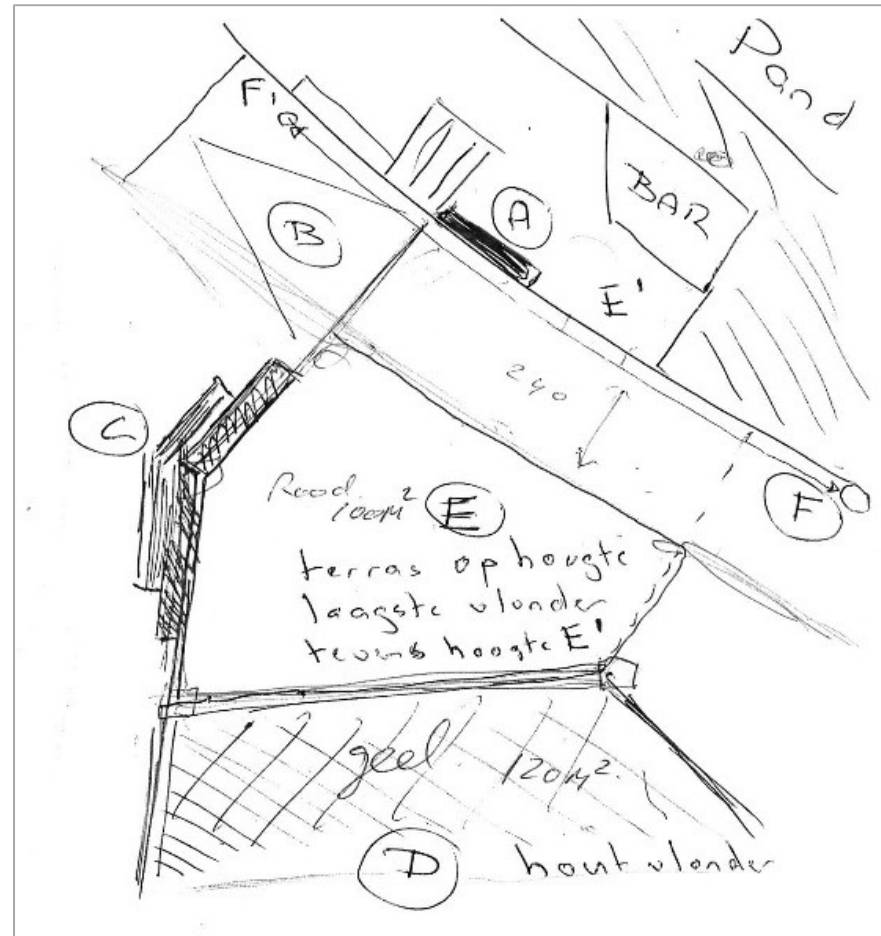 Pand
F'
BAR
A
B
E'
240
C
F
Rood
100M²
E
terras op hoogte
laagste vlonder
tevens hoogte E'
geel
120M²
D
hout vlonder